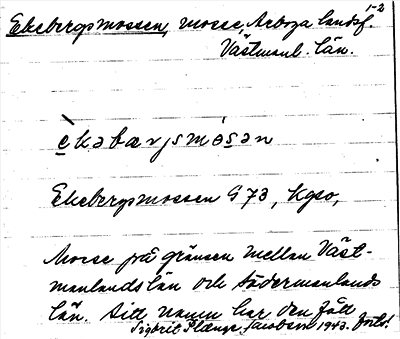 1-2
Ekebergsmossen, mosse, Arboga landsf.
Västmanl. län.
èkəbærjsmósən
Ekebergsmossen G 73, Kgso,
Mosse på gränsen mellan Väst-
manlands län och Södermanlands
län. Sitt namn har den fått
Sigbrit Plænge Jacobson 1943. forts!